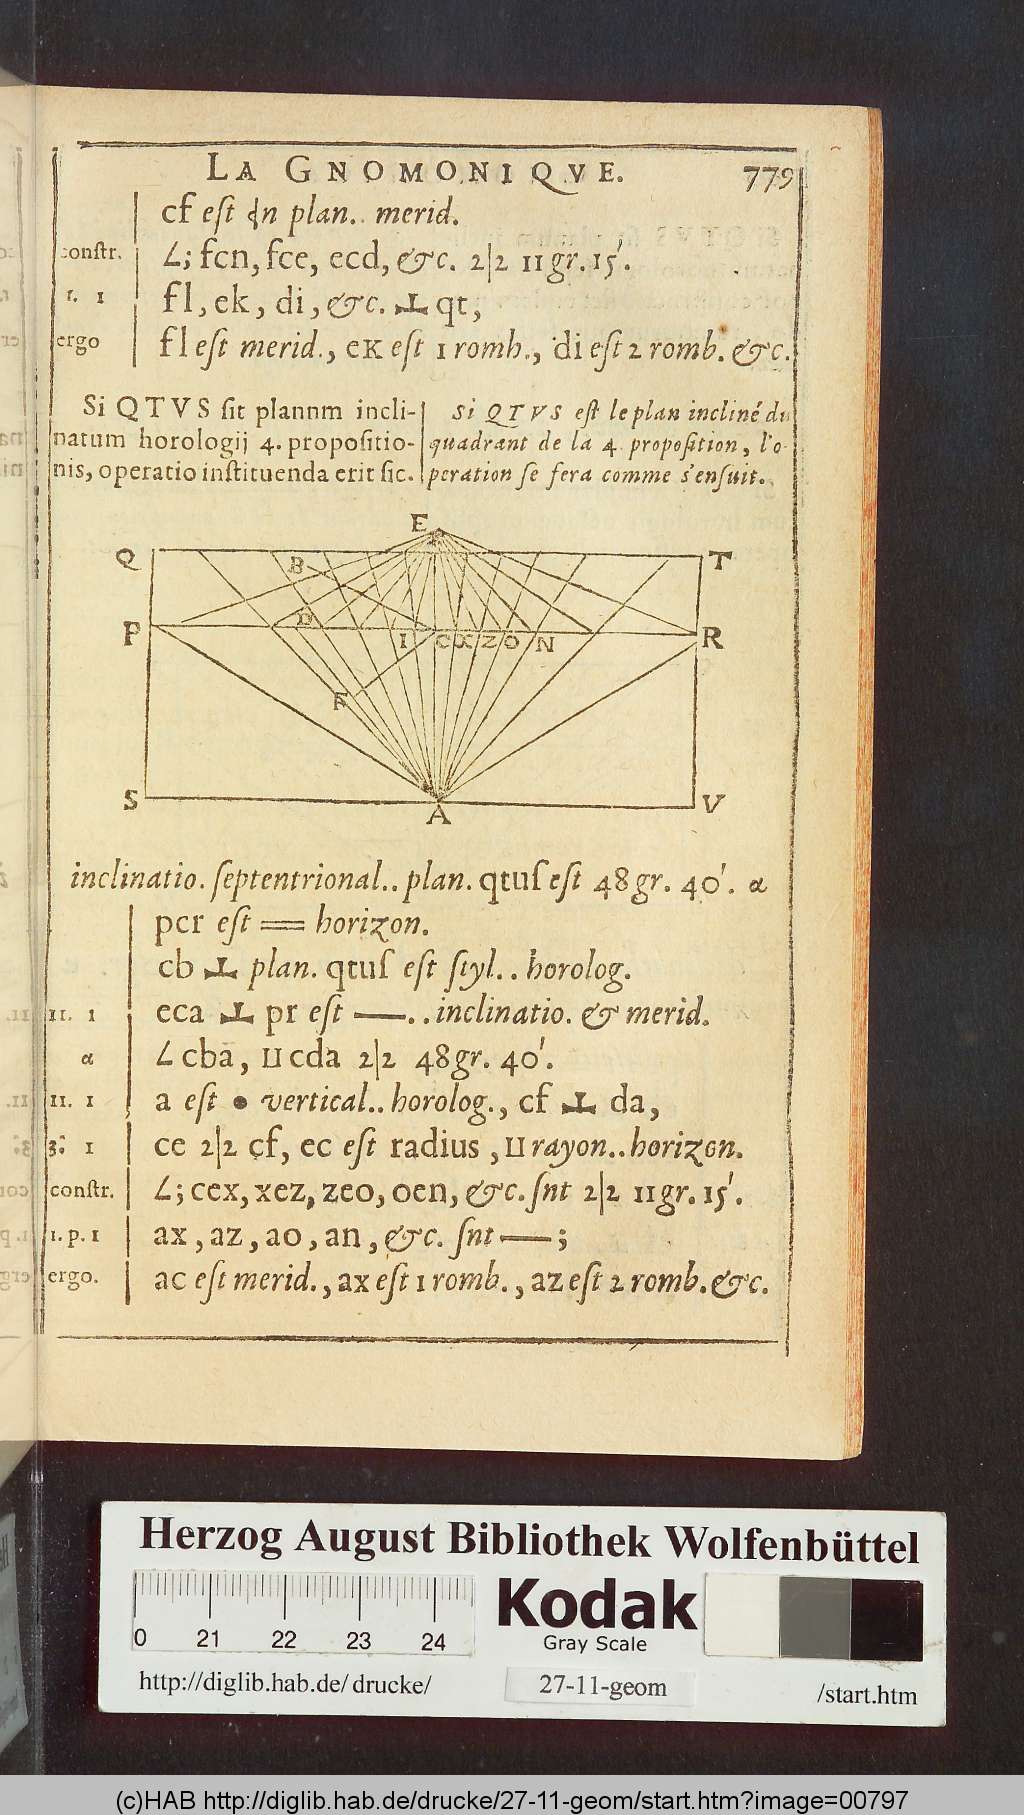 LA GNOMONIQVE. 779
cf est in plan.. merid.
constr. ∠; fcn, fce, ecd, &c. 2|2 11 gr. 15'.
1. 1 fl, ek, di, &c. ⊥ qt,
ergo fl est merid., eK est 1 romb., di est 2 romb. &c.
Si QTVS sit plannm incli-
natum horologij 4. propositio-
nis, operatio instituenda erit sic.
Si QTVS est le plan incliné du
quadrant de la 4 proposition, l'o-
peration se fera comme s'ensuit.
E
Q B T
P D I C α Z O N R
F
S A V
inclinatio. septentrional.. plan. qtus est 48 gr. 40'. α
pcr est = horizon.
cb ⊥ plan. qtus est styl.. horolog.
11. 1 eca ⊥ pr est —.. inclinatio. & merid.
α ∠ cba, ⊔ cda 2|2 48 gr. 40'.
11. 1 a est • vertical.. horolog., cf ⊥ da,
3. 1 ce 2|2 cf, ec est radius, ⊔ rayon.. horizon.
constr. ∠; cex, xez, zeo, oen, &c. snt 2|2 11 gr. 15'.
1. p. 1 ax, az, ao, an, &c. snt —;
ergo. ac est merid., ax est 1 romb., az est 2 romb. &c.
Herzog August Bibliothek Wolfenbüttel
0 21 22 23 24
Kodak
Gray Scale
http://diglib.hab.de/drucke/ 27-11-geom /start.htm
(c)HAB http://diglib.hab.de/drucke/27-11-geom/start.htm?image=00797